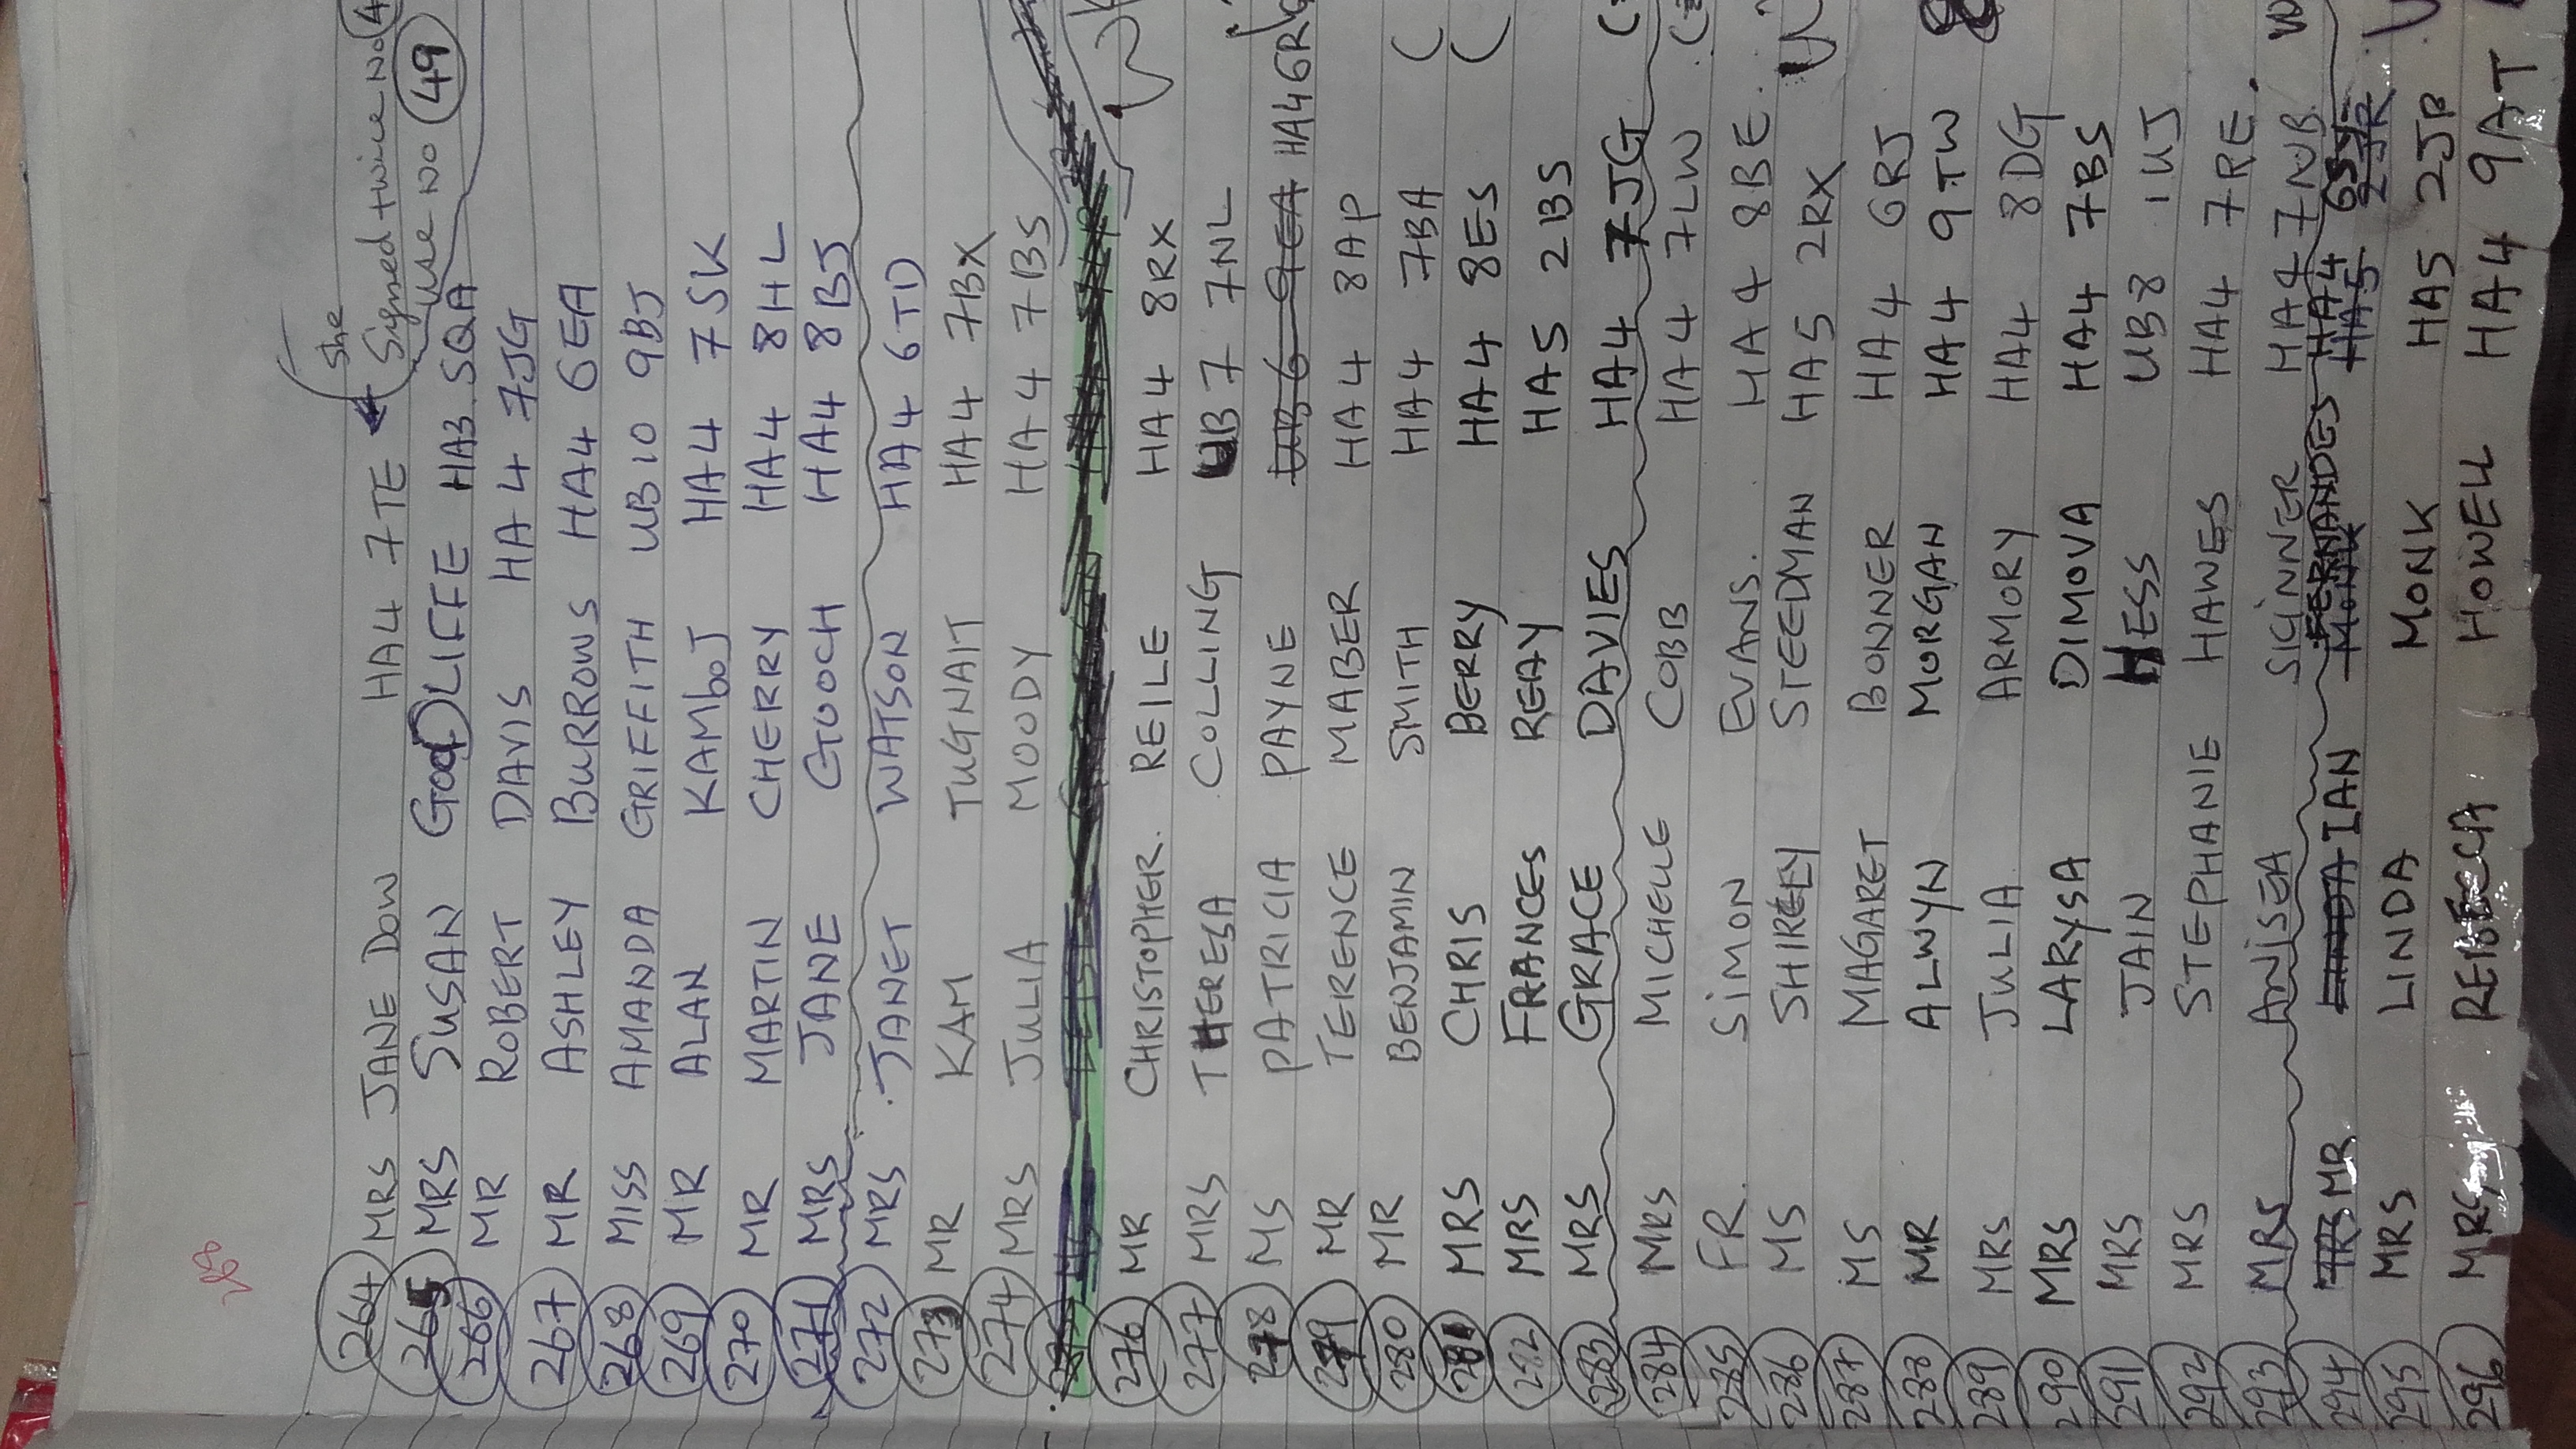 268
She
264 MRS JANE DOW HA4 7TE Signed twice No
use No 49
265 MRS SUSAN GooDLIFFE HA3 5QA
266 MR ROBERT DAVIS HA4 7JG
267 MR ASHLEY BURROWS HA4 6EA
268 MISS AMANDA GRIFFITH UB10 9BJ
269 MR ALAN KAMboJ HA4 7SK
270 MR MARTIN CHERRY HA4 8HL
271 MRS JANE GOOCH HA4 8BJ
272 MRS JANET WATSON HA4 6TD
273 MR KAM TUGNAIT HA4 7BX
274 MRS JULIA MOODY HA4 7BS
276 MR CHRISTOPHER. REILE HA4 8RX
277 MRS THERESA COLLING UB7 7NL
278 MS PATRICIA PAYNE UB6 9EA HA4 6R
279 MR TERENCE MABER HA4 8AP
280 MR BENJAMIN SMITH HA4 7BA (
281 MRS CHRIS BERRY HA4 8ES (
282 MRS FRANCES REAY HA5 2BS
283 MRS GRACE DAVIES HA4 7JG (
284 MRS MICHELLE COBB HA4 7LW (
285 FR. SIMON EVANS. HA4 8BE.
286 MS SHIRLEY STEEDMAN HA5 2RX
287 MS MAGARET BONNER HA4 6RJ
288 MR ALWYN MORGAN HA4 9TW
289 MRS JULIA ARMORY HA4 8DG
290 MRS LARYSA DIMOVA HA4 7BS
291 MRS JAIN HESS UB8 1UJ
292 MRS STEPHANIE HAWES HA4 7RE.
293 MRS ANISEA SKINNER HA4 7NB
FERNANDES HA4
294 MR LINDA IAN MONK HA5 2JR
295 MRS LINDA MONK HA5 2JB
296 MRS REBECCA HOWELL HA4 9AT